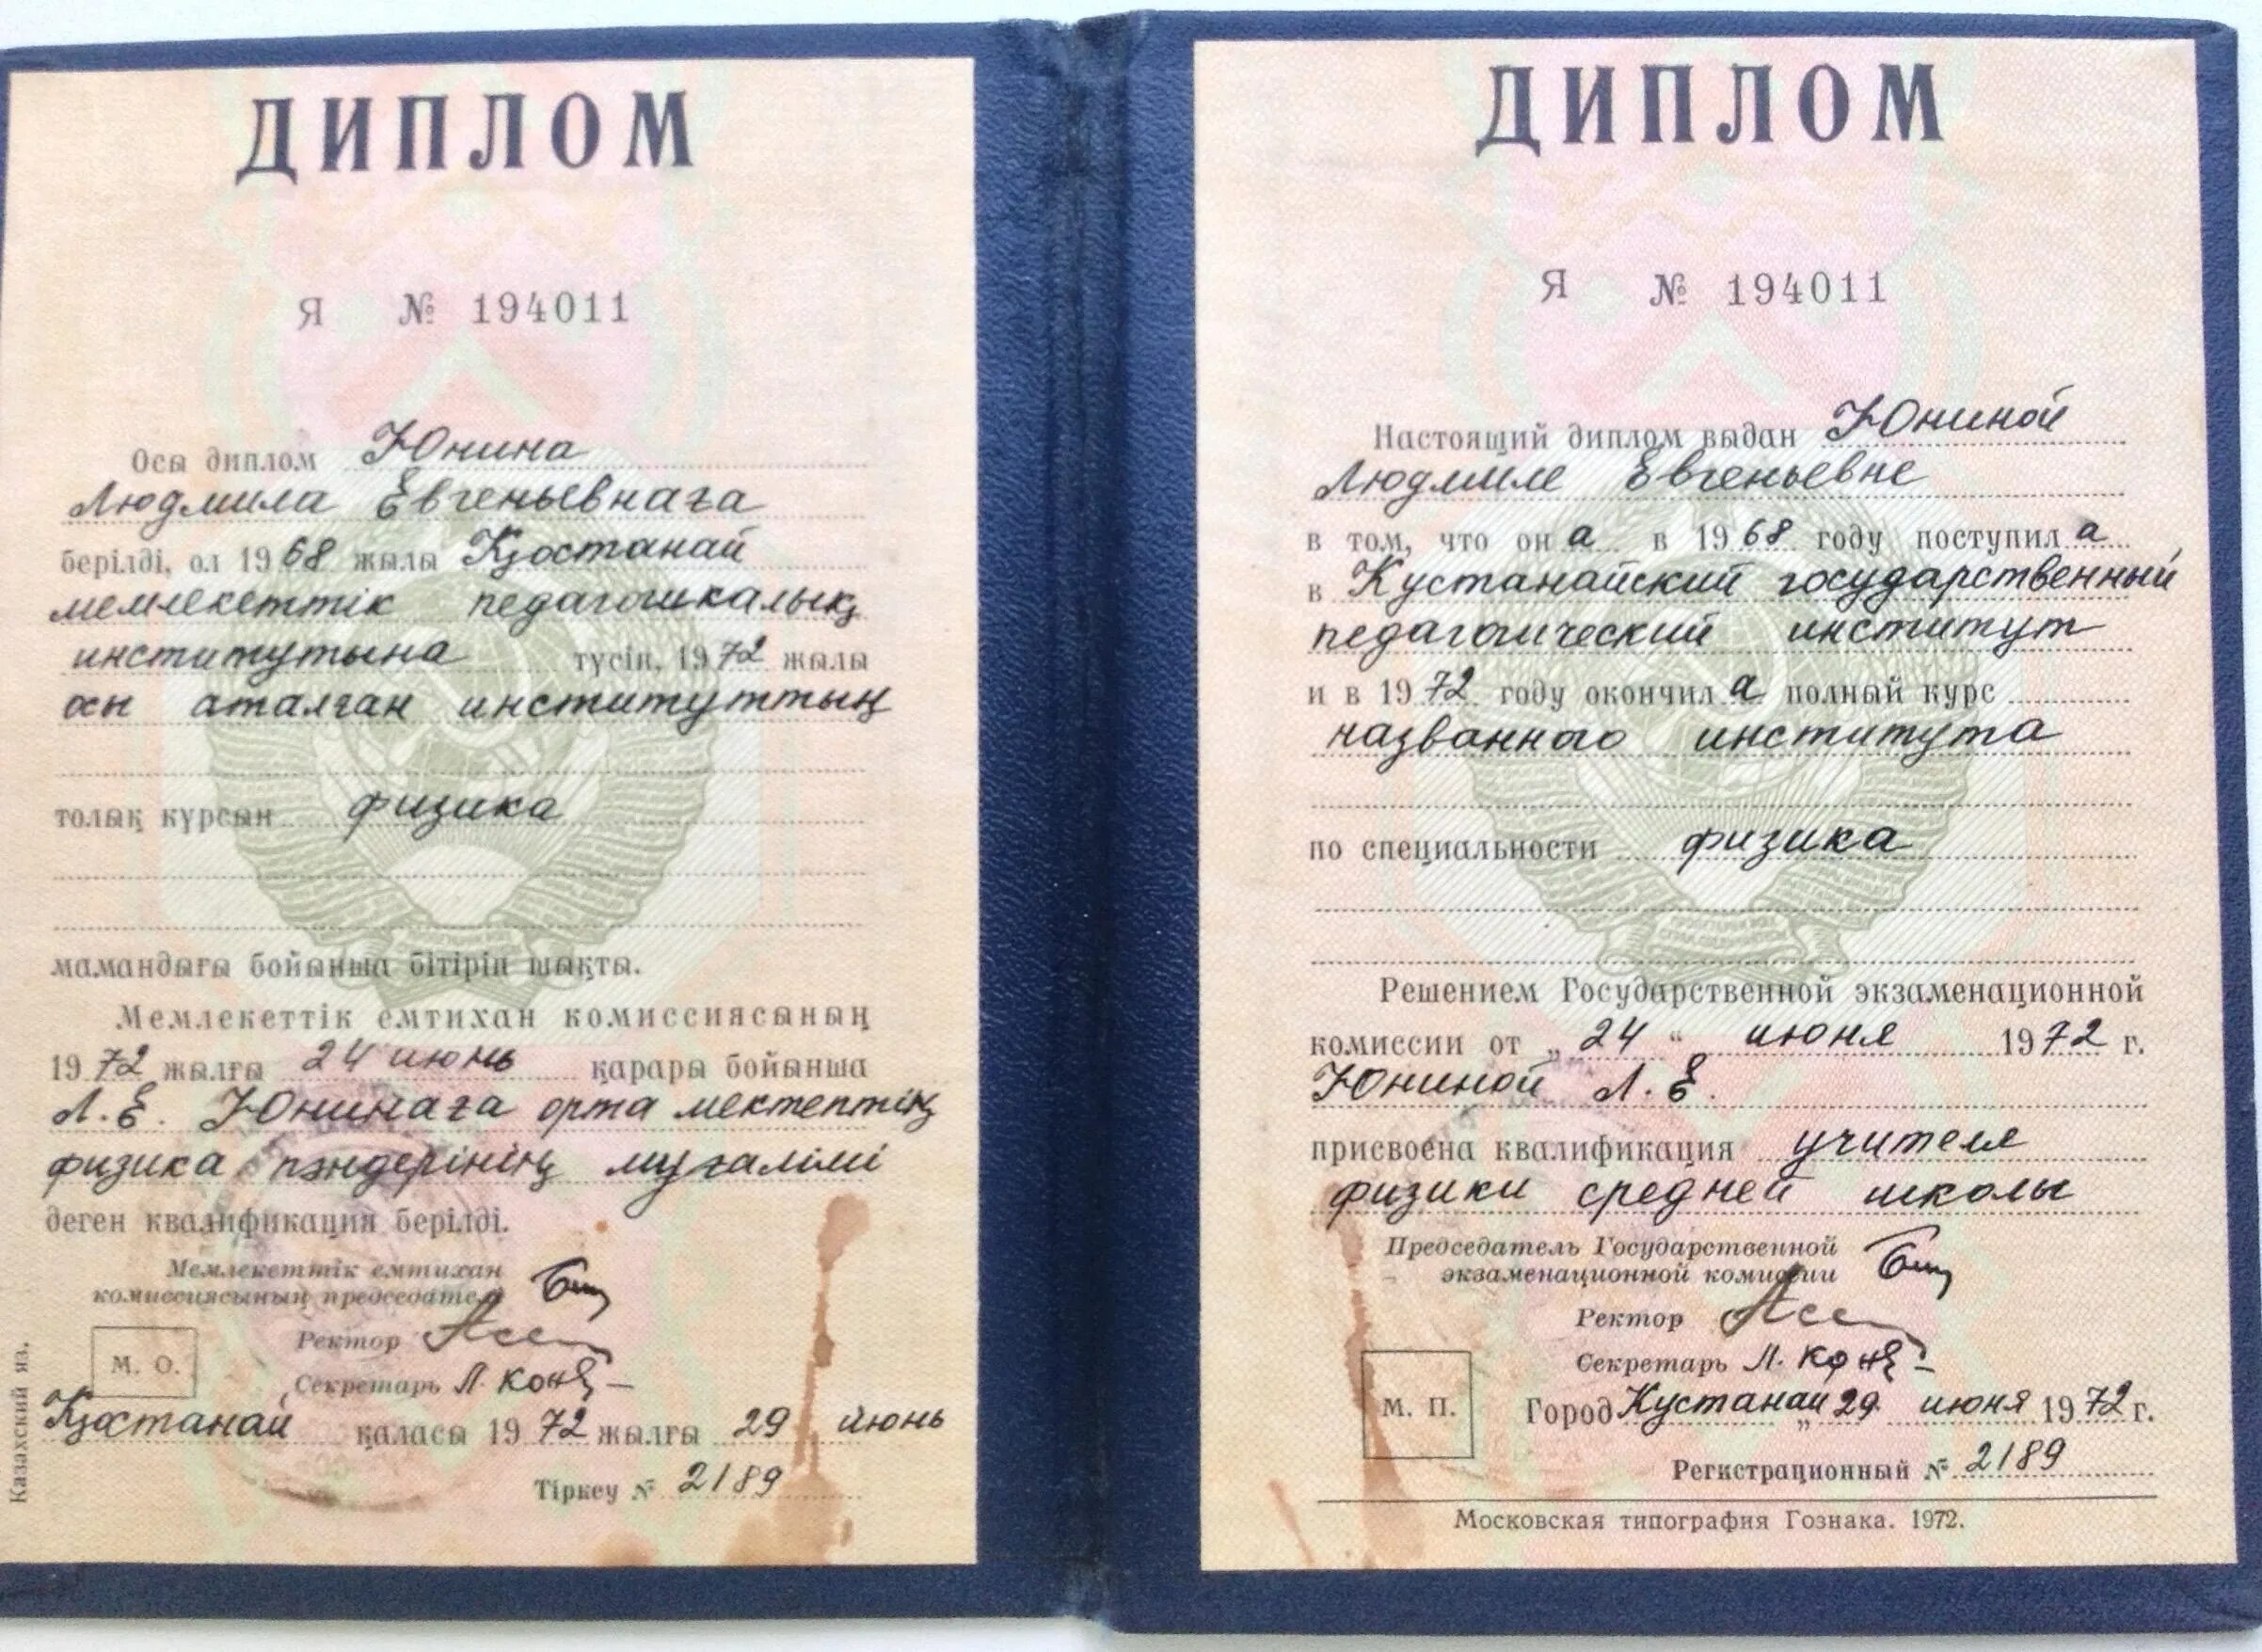 ДИПЛОМ
Я № 194011
Осы диплом Юнина
Людмила Евгеньевнаға
берілді, ол 1968 жылы Қостанай
мемлекеттік педагогикалық
институтына түсіп, 1972 жылы
осы аталған институттың
толық курсын физика
мамандығы бойынша бітіріп шықты.
Мемлекеттік емтихан комиссиясының
1972 жылғы 24 июнь қарары бойынша
Л.Е. Юнинаға орта мектептің
физика пәндерінің мұғалімі
деген квалификация берілді.
Мемлекеттік емтихан
комиссиясының председателі
Ректор
Секретарь Л.
М. О.
Қостанай қаласы 1972 жылғы 29 июнь
Тіркеу № 2189
Казахский яз.
ДИПЛОМ
Я № 194011
Настоящий диплом выдан Юниной
Людмиле Евгеньевне
в том, что он а в 1968 году поступил а
в Кустанайский государственный
педагогический институт
и в 1972 году окончил а полный курс
названного института
по специальности физика
Решением Государственной экзаменационной
комиссии от „24“ июня 1972 г.
Юниной Л.Е.
присвоена квалификация учителя
физики средней школы
Председатель Государственной
экзаменационной комиссии
Ректор
Секретарь Л.
М. П.
Город Кустанай „29 июня 1972 г.
Регистрационный № 2189
Московская типография Гознака. 1972.